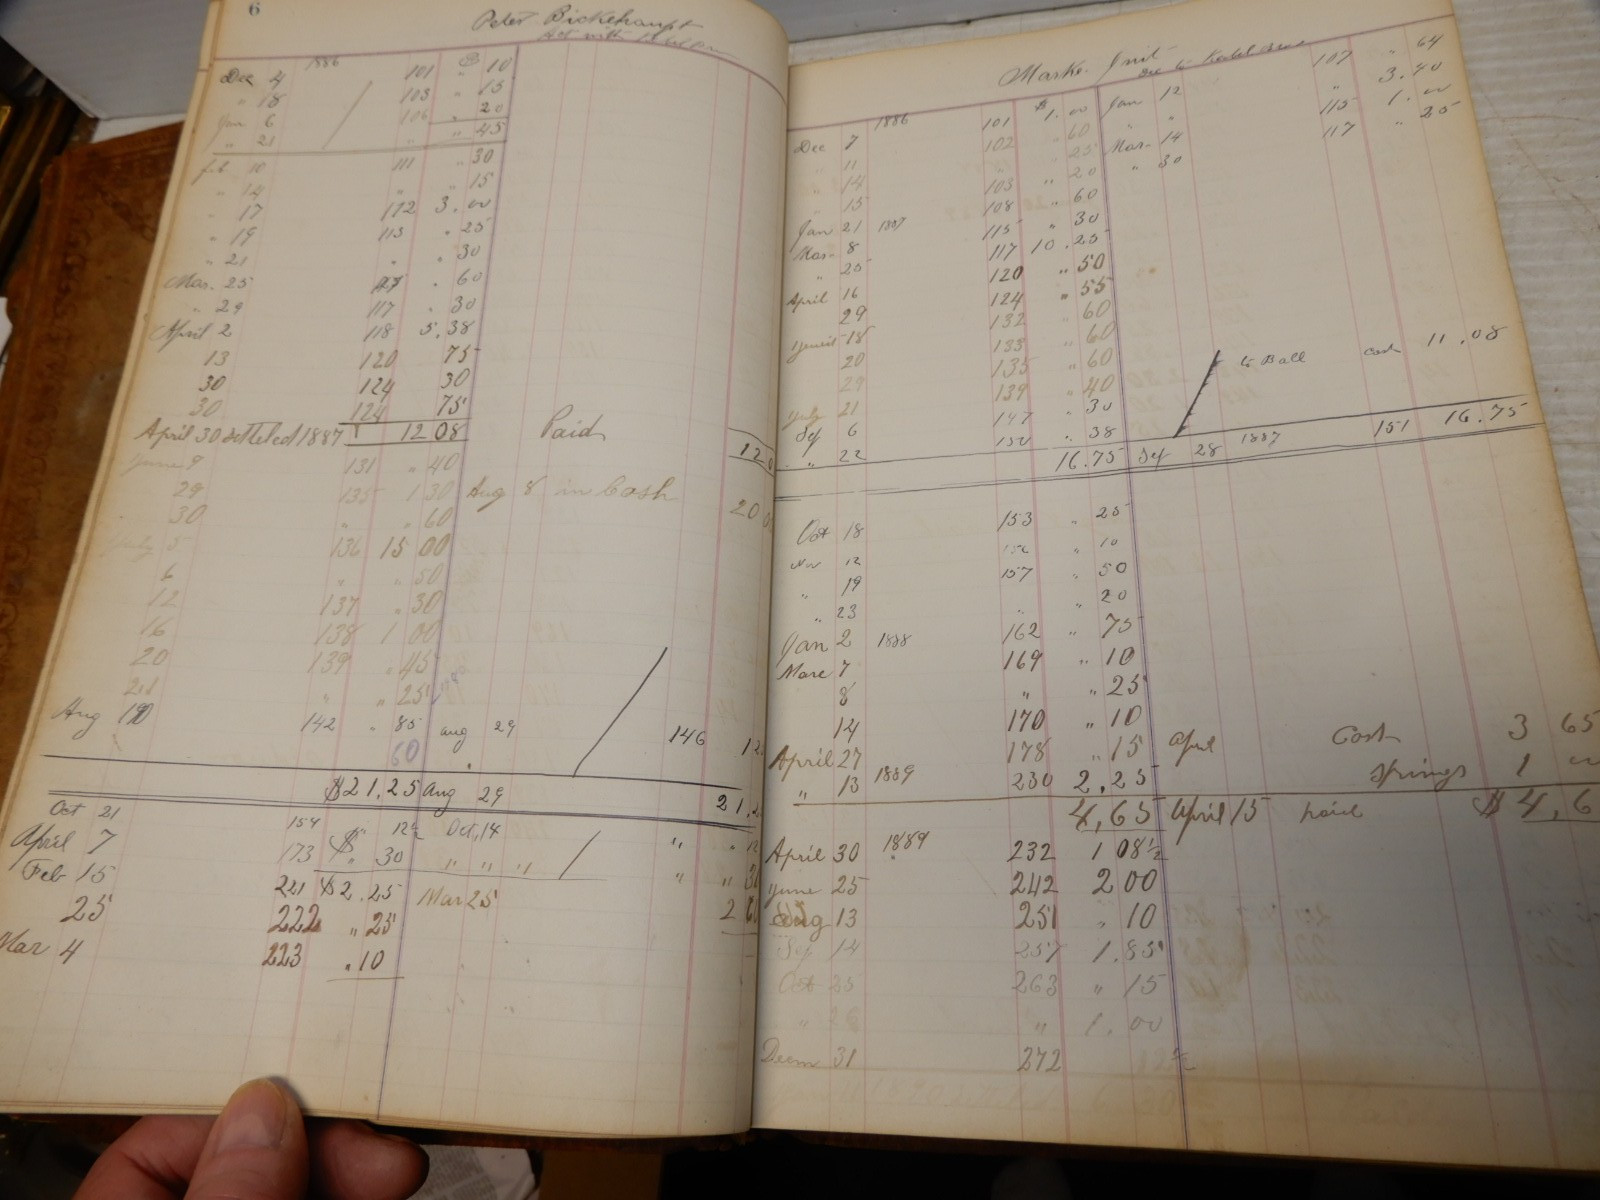 6
Peter Bickehaupt
1886
Dec 4 101 " 10
" 18 103 " 15
Jan 6 106 " 20
" 21 " " 45
Feb 10 111 " 30
" 14 " " 15
" 17 112 3.00
" 19 113 " 25
" 21 " " 30
Mar. 25 " 60
" 29 117 " 30
April 2 118 5.38
13 120 75
30 124 30
30 124 75
April 30 settled 1887 12 08 Paid 12 0
June 9 131 " 40
29 135 1 30 Aug 8 in Cash 20 0
30 " " 60
July 5 136 15 00
6 " " 50
12 137 " 30
16 138 1 00
20 139 " 45
21 " " 25
Aug 142 " 85 aug 29 146 12
60
$21,25 Aug 29 21,2
Oct 21 154 " 12½ Oct,14 " " 12
April 7 173 $ " 30 " " " " " 3
Feb 15 221 $2.25 Mar 25 2
25 222 " 25
Mar 4 223 " 10
Marke
1886
Dec 7 101 $1.00 Jan 12 107 " 64
" 11 102 " 60 " " " 3.40
" 14 " " 25 Mar. 14 115 1.00
" 15 103 " 20 " 30 117 " 25
Jan 21 1887 108 " 60
Mar. 8 115 " 30
" 25 117 10.25
April 16 120 " 50
29 124 " 55
18 132 " 60
20 133 " 60
29 135 " 60
July 21 139 " 40
Sep 6 147 " 30 to Ball Cash 11.08
" 22 150 " 38
16.75 Sep 28 1887 151 16.75
Oct 18 153 " 25
Nov 12 156 " 10
" 19 157 " 50
" 23 " " 20
Jan 2 1888 162 " 75
Marc 7 169 " 10
8 " " 25
14 170 " 10
April 27 178 " 15 April Cash 3 65
" 13 1889 230 2,25 Springs 1 00
4,65 April 15 paid $4,6
April 30 1889 232 1 08½
June 25 242 2 00
Aug 13 251 " 10
Sep 14 257 1.85
Oct 25 263 " 15
" " 1.00
Decm 31 272 12½